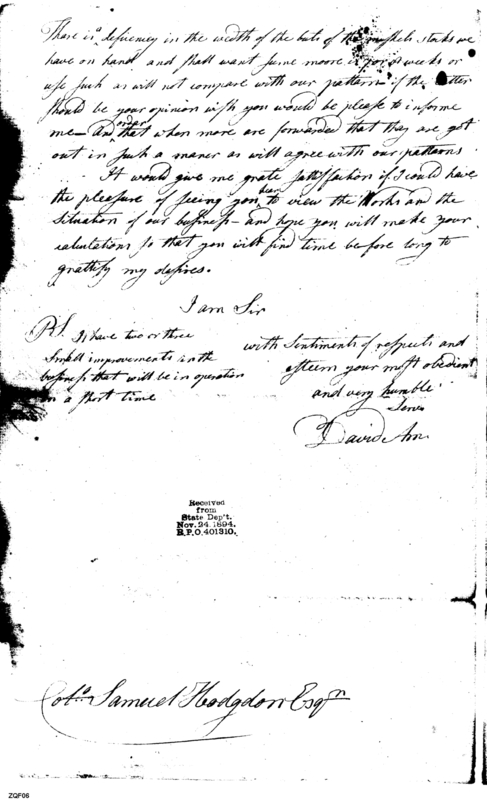 There is deficiency in the width of the buts of the muskets stocks we
have on hand and shall want some more in for weeks or
use such as will not compare with our pattern if the latter
should be your opinion wish you would be please to informe
me — and order that when more are forwarded that they are got
out in such a maner as will agree with our patterns
It would give me grate sattisfaction if I could have
the pleasure of seeing you hear to view the Works and the
situation of our bussiness — and hope you will make your
calculations so that you will find time before long to
grattify my desires.
I am Sir
with Sentiments of respects and
esteem your most obedient
and very humble
Serv
David Am
PS. I have two or three
Small improvements in the
bussness that will be in operation
in a short time
Received
from
State Dep't.
Nov. 24, 1894.
R.P.O. 401310.
Colo. Samuel Hodgdon Esqr
ZQF06